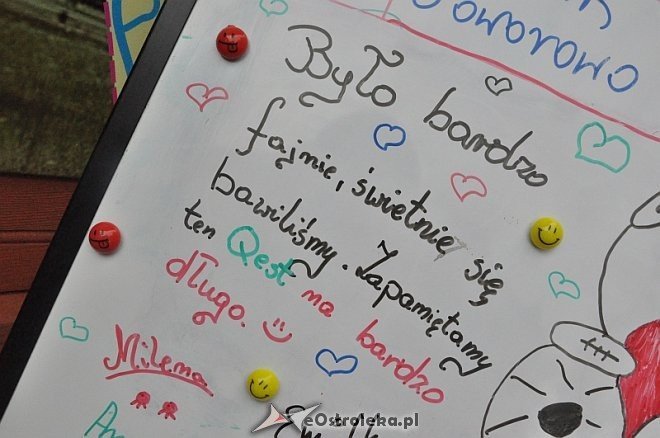 Goworowo
Było bardzo
fajnie, świetnie się
bawiliśmy. Zapamiętamy
ten Qest na bardzo
długo.
Milena
eOstroleka.pl